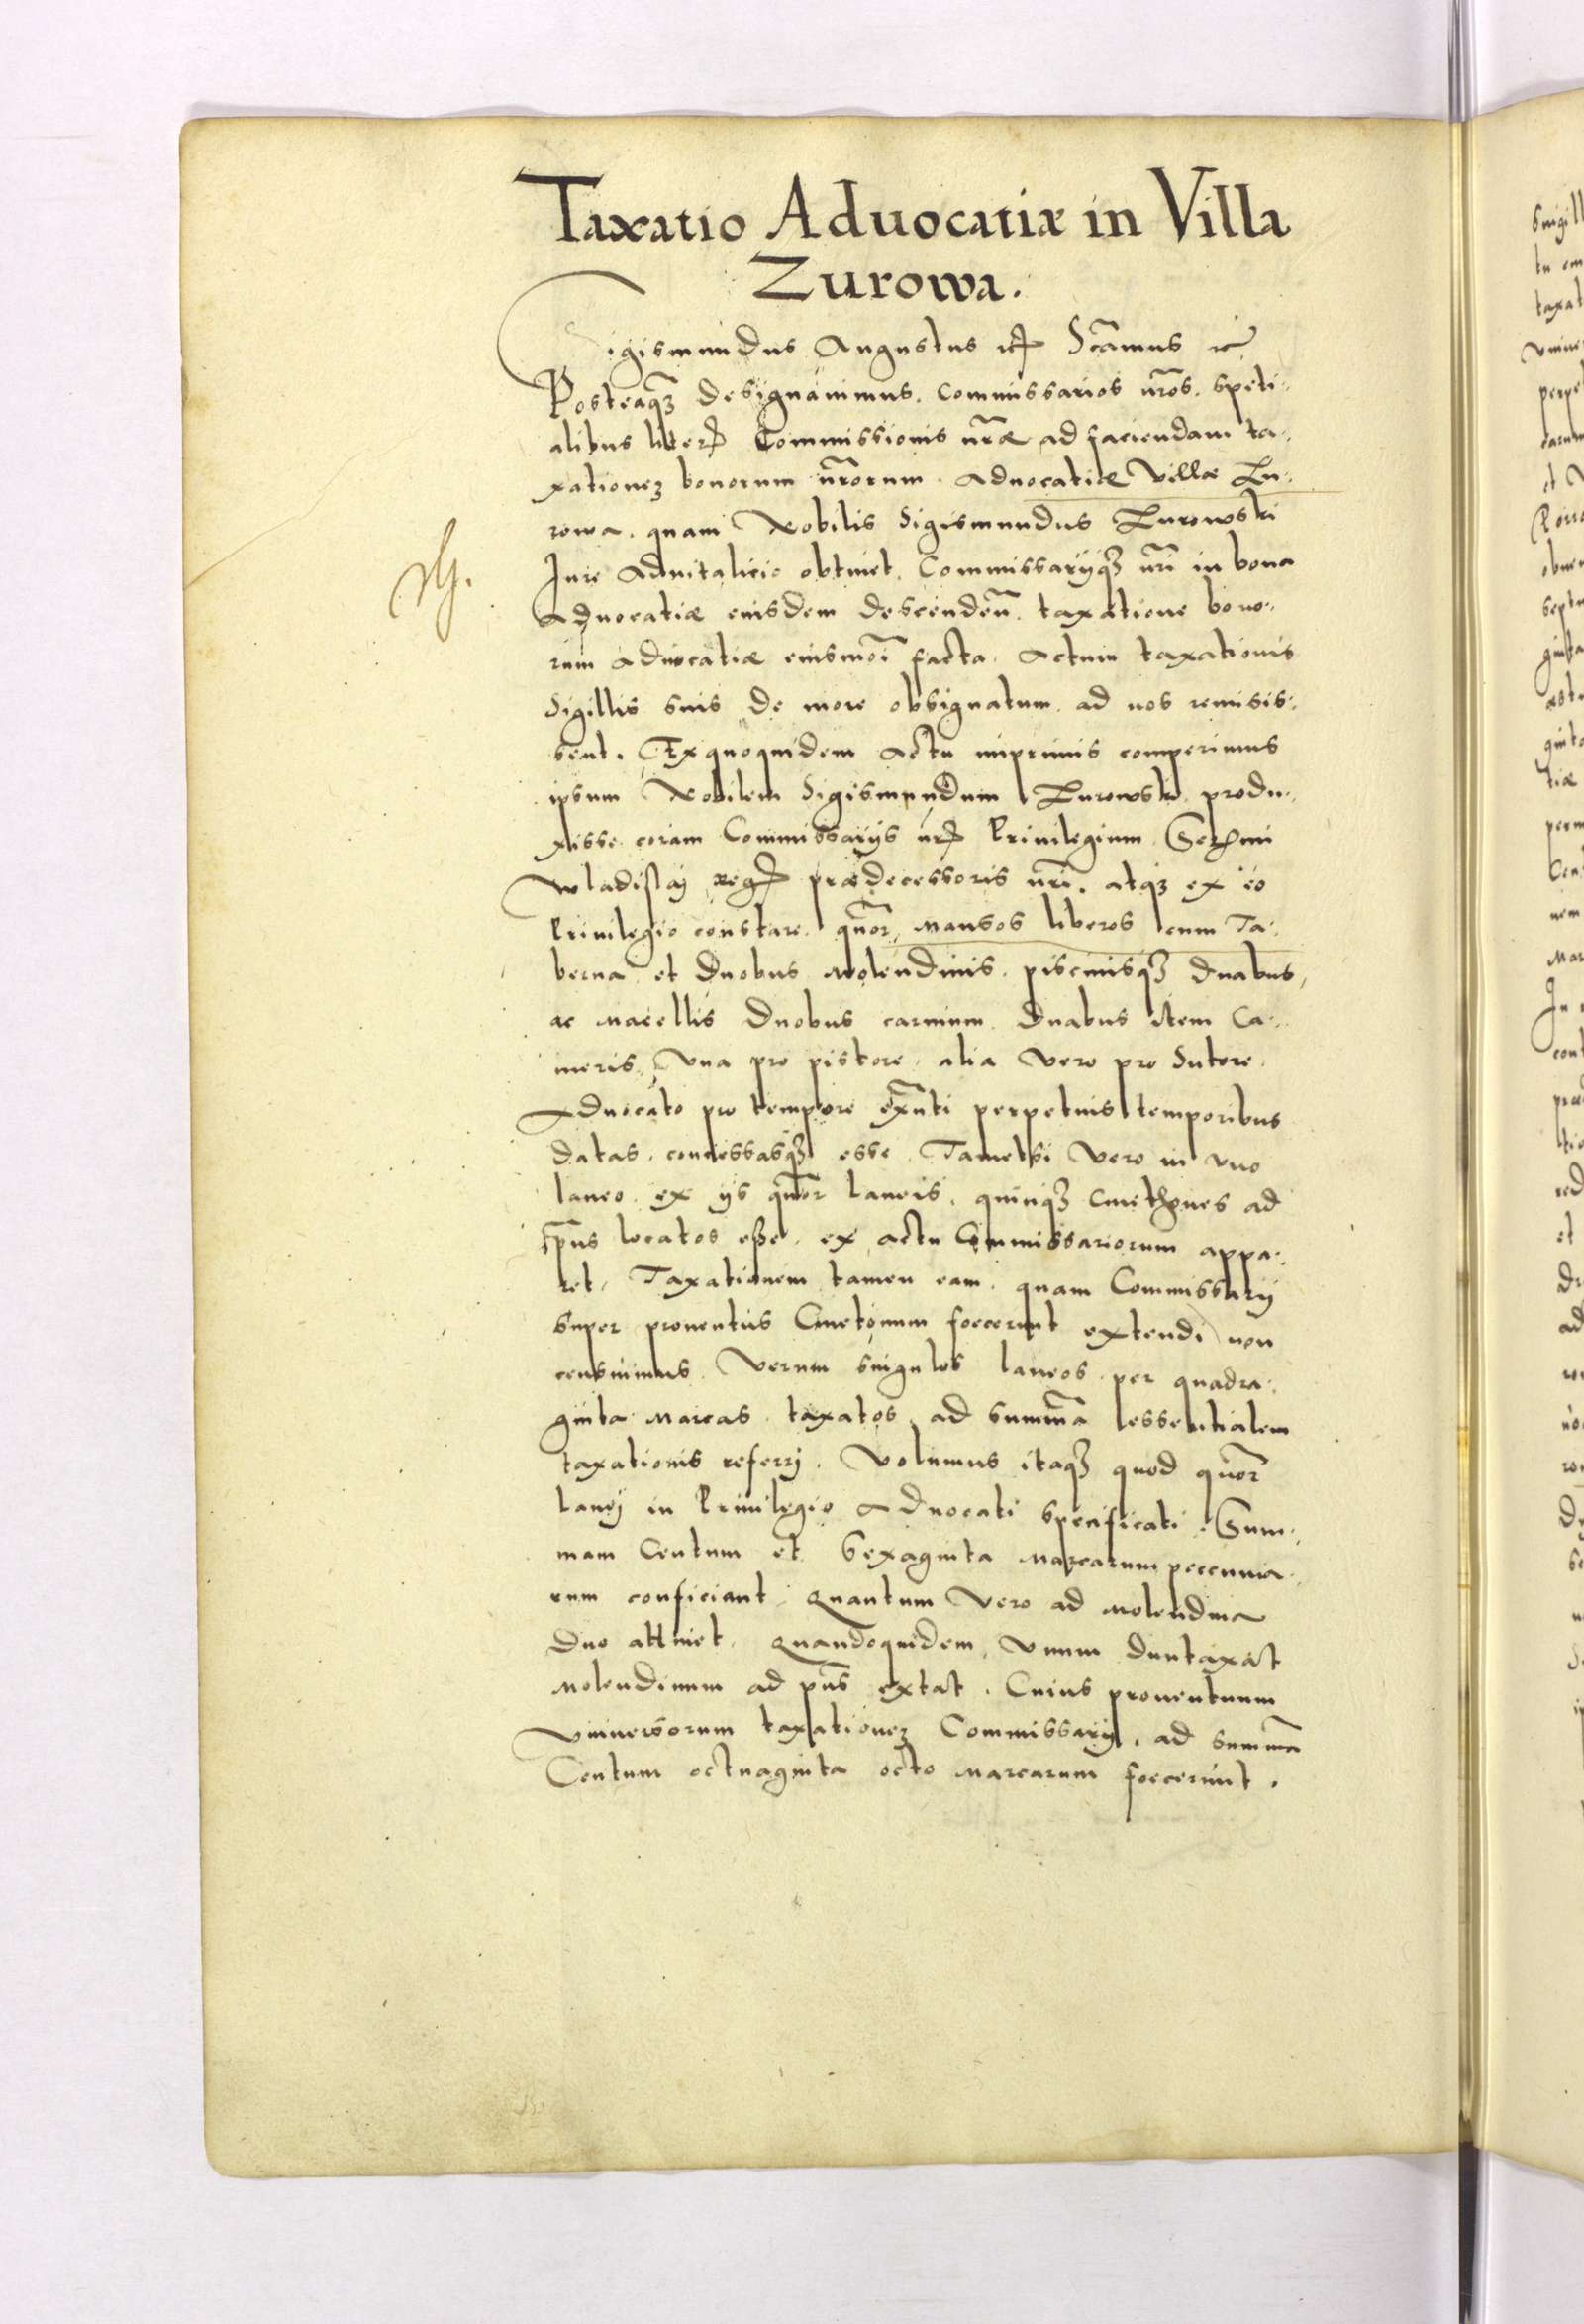 Taxatio Aduocatiæ in Villa
Zurowa.
Sigismundus Augustus etc. Sc̃amus etc.
Posteaqȝ designauimus. Commissarios nr̃os. speti-
alibus liter̃ Commissionis nr̃æ ad faciendam ta-
xationeȝ bonorum nr̃orum. Aduocatiæ Villæ Zu-
rowa. quam Nobilis Sigismundus Zurowski
Iure Aduitalicio obtinet. Commissarijqȝ nr̃i in bona
Aduocatiæ eiusdem descendeñ. taxatione bono-
rum aduocatiæ eiusmõi facta. Actum taxationis
Sigillis suis de more obsignatum. ad nos remisis-
sent. Ex quoquidem Actu imprimis comperimus
ipsum Nobilem Sigismundum Zurowski. produ-
xisse coram Commissarijs nr̃ Priuilegium Serẽmi
Wladislaj reg̃ prædecessoris nr̃i. atqȝ ex eo
Priuilegio constare. quõr. Mansos liberos cum Ta-
berna et duobus Molendinis. piscinisqȝ duabus,
ac Macellis duobus carnium. duabus item Ca-
meris. Vna pro pistore. alia vero pro Sutore.
Aduocato pro tempore exñti perpetuis temporibus
datas. concessasqȝ esse. Tametsi vero in vno
laneo. ex ijs quõr laneis. quinqȝ Cmethones ad
pñs locatos esse. ex actu Commissariorum appa-
ret. Taxationem tamen eam. quam Commissarij
super prouentus Cmetonum foecerunt extendi non
censuimus. Verum singulos laneos. per quadra-
ginta Marcas. taxatos. ad summã essentialem
taxationis referrj. Volumus itaqȝ quod quõr
lanej in Priuilegio Aduocati specificati. Sum-
mam Centum et Sexaginta Marcarum peccunia-
rum conficiant. Quantum vero ad Molendina
duo attinet. Quandoquidem. Vnum duntaxat
Molendinum ad pñs extat. Cuius prouentuum
Vniuersorum taxationeȝ Commissarij. ad summã
Centum octuaginta octo Marcarum foecerunt.